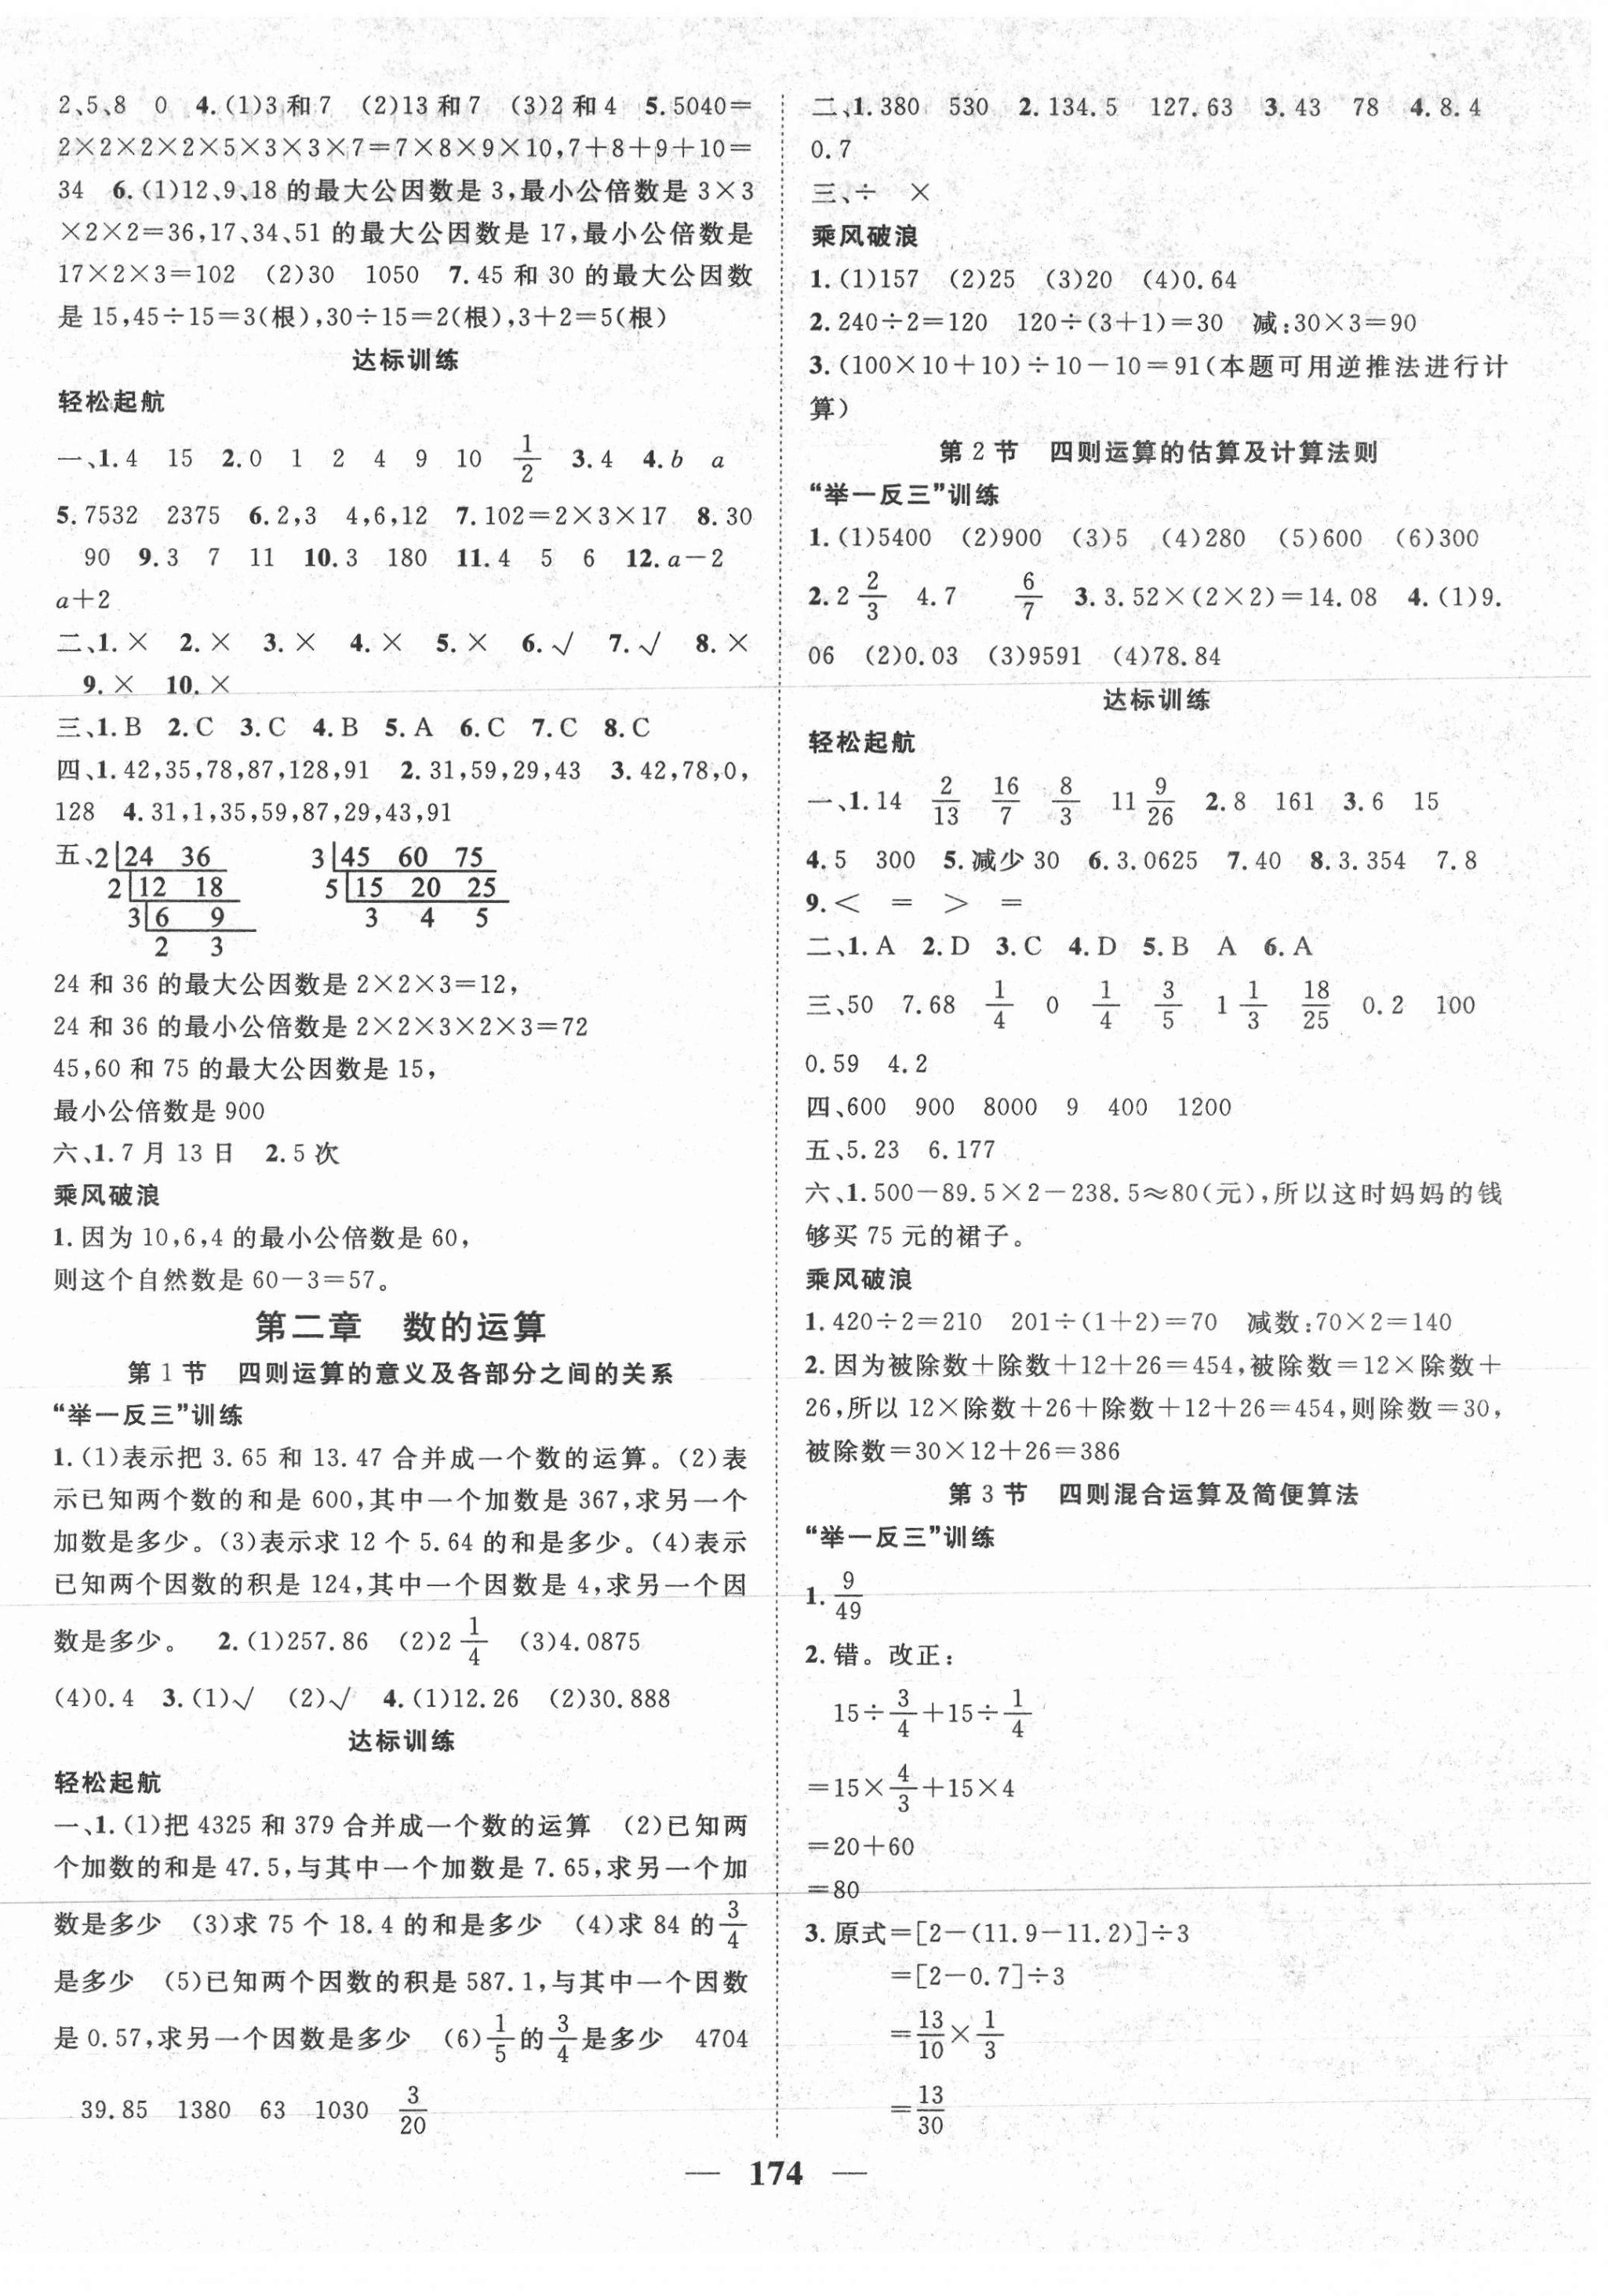 2、5、8　0　4.(1)3和7　(2)13和7　(3)2和4　5.5040＝
2×2×2×2×5×3×3×7＝7×8×9×10,7＋8＋9＋10＝
34　6.(1)12、9、18的最大公因数是3,最小公倍数是3×3
×2×2＝36,17、34、51的最大公因数是17,最小公倍数是
17×2×3＝102　(2)30　1050　7.45和30的最大公因数
是15,45÷15＝3(根),30÷15＝2(根),3＋2＝5(根)
达标训练
轻松起航
一、1.4　15　2.0　1　2　4　9　10　1/2　3.4　4.b　a
5.7532　2375　6.2,3　4,6,12　7.102＝2×3×17　8.30
90　9.3　7　11　10.3　180　11.4　5　6　12.a－2
a＋2
二、1.×　2.×　3.×　4.×　5.×　6.√　7.√　8.×
9.×　10.×
三、1.B　2.C　3.C　4.B　5.A　6.C　7.C　8.C
四、1.42,35,78,87,128,91　2.31,59,29,43　3.42,78,0,
128　4.31,1,35,59,87,29,43,91
五、2|24　36　　3|45　60　75
2|12　18　　5|15　20　25
3|6　9　　3　4　5
2　3
24和36的最大公因数是2×2×3＝12,
24和36的最小公倍数是2×2×3×2×3＝72
45,60和75的最大公因数是15,
最小公倍数是900
六、1.7月13日　2.5次
乘风破浪
1.因为10,6,4的最小公倍数是60,
则这个自然数是60－3＝57。
第二章　数的运算
第1节　四则运算的意义及各部分之间的关系
“举一反三”训练
1.(1)表示把3.65和13.47合并成一个数的运算。(2)表
示已知两个数的和是600,其中一个加数是367,求另一个
加数是多少。(3)表示求12个5.64的和是多少。(4)表示
已知两个因数的积是124,其中一个因数是4,求另一个因
数是多少。　2.(1)257.86　(2)2 1/4　(3)4.0875
(4)0.4　3.(1)√　(2)√　4.(1)12.26　(2)30.888
达标训练
轻松起航
一、1.(1)把4325和379合并成一个数的运算　(2)已知两
个加数的和是47.5,与其中一个加数是7.65,求另一个加
数是多少　(3)求75个18.4的和是多少　(4)求84的3/4
是多少　(5)已知两个因数的积是587.1,与其中一个因数
是0.57,求另一个因数是多少　(6)1/5的3/4是多少　4704
39.85　1380　63　1030　3/20
二、1.380　530　2.134.5　127.63　3.43　78　4.8.4
0.7
三、÷　×
乘风破浪
1.(1)157　(2)25　(3)20　(4)0.64
2.240÷2＝120　120÷(3＋1)＝30　减:30×3＝90
3.(100×10＋10)÷10－10＝91(本题可用逆推法进行计
算)
第2节　四则运算的估算及计算法则
“举一反三”训练
1.(1)5400　(2)900　(3)5　(4)280　(5)600　(6)300
2.2 2/3　4.7　6/7　3.3.52×(2×2)＝14.08　4.(1)9.
06　(2)0.03　(3)9591　(4)78.84
达标训练
轻松起航
一、1.14　2/13　16/7　8/3　11 9/26　2.8　161　3.6　15
4.5　300　5.减少30　6.3.0625　7.40　8.3.354　7.8
9.＜　＝　＞　＝
二、1.A　2.D　3.C　4.D　5.B　A　6.A
三、50　7.68　1/4　0　1/4　3/5　1 1/3　18/25　0.2　100
0.59　4.2
四、600　900　8000　9　400　1200
五、5.23　6.177
六、1.500－89.5×2－238.5≈80(元),所以这时妈妈的钱
够买75元的裙子。
乘风破浪
1.420÷2＝210　201÷(1＋2)＝70　减数:70×2＝140
2.因为被除数＋除数＋12＋26＝454,被除数＝12×除数＋
26,所以12×除数＋26＋除数＋12＋26＝454,则除数＝30,
被除数＝30×12＋26＝386
第3节　四则混合运算及简便算法
“举一反三”训练
1. 9/49
2.错。改正:
15÷3/4＋15÷1/4
＝15×4/3＋15×4
＝20＋60
＝80
3.原式＝[2－(11.9－11.2)]÷3
＝[2－0.7]÷3
＝13/10×1/3
＝13/30
— 174 —